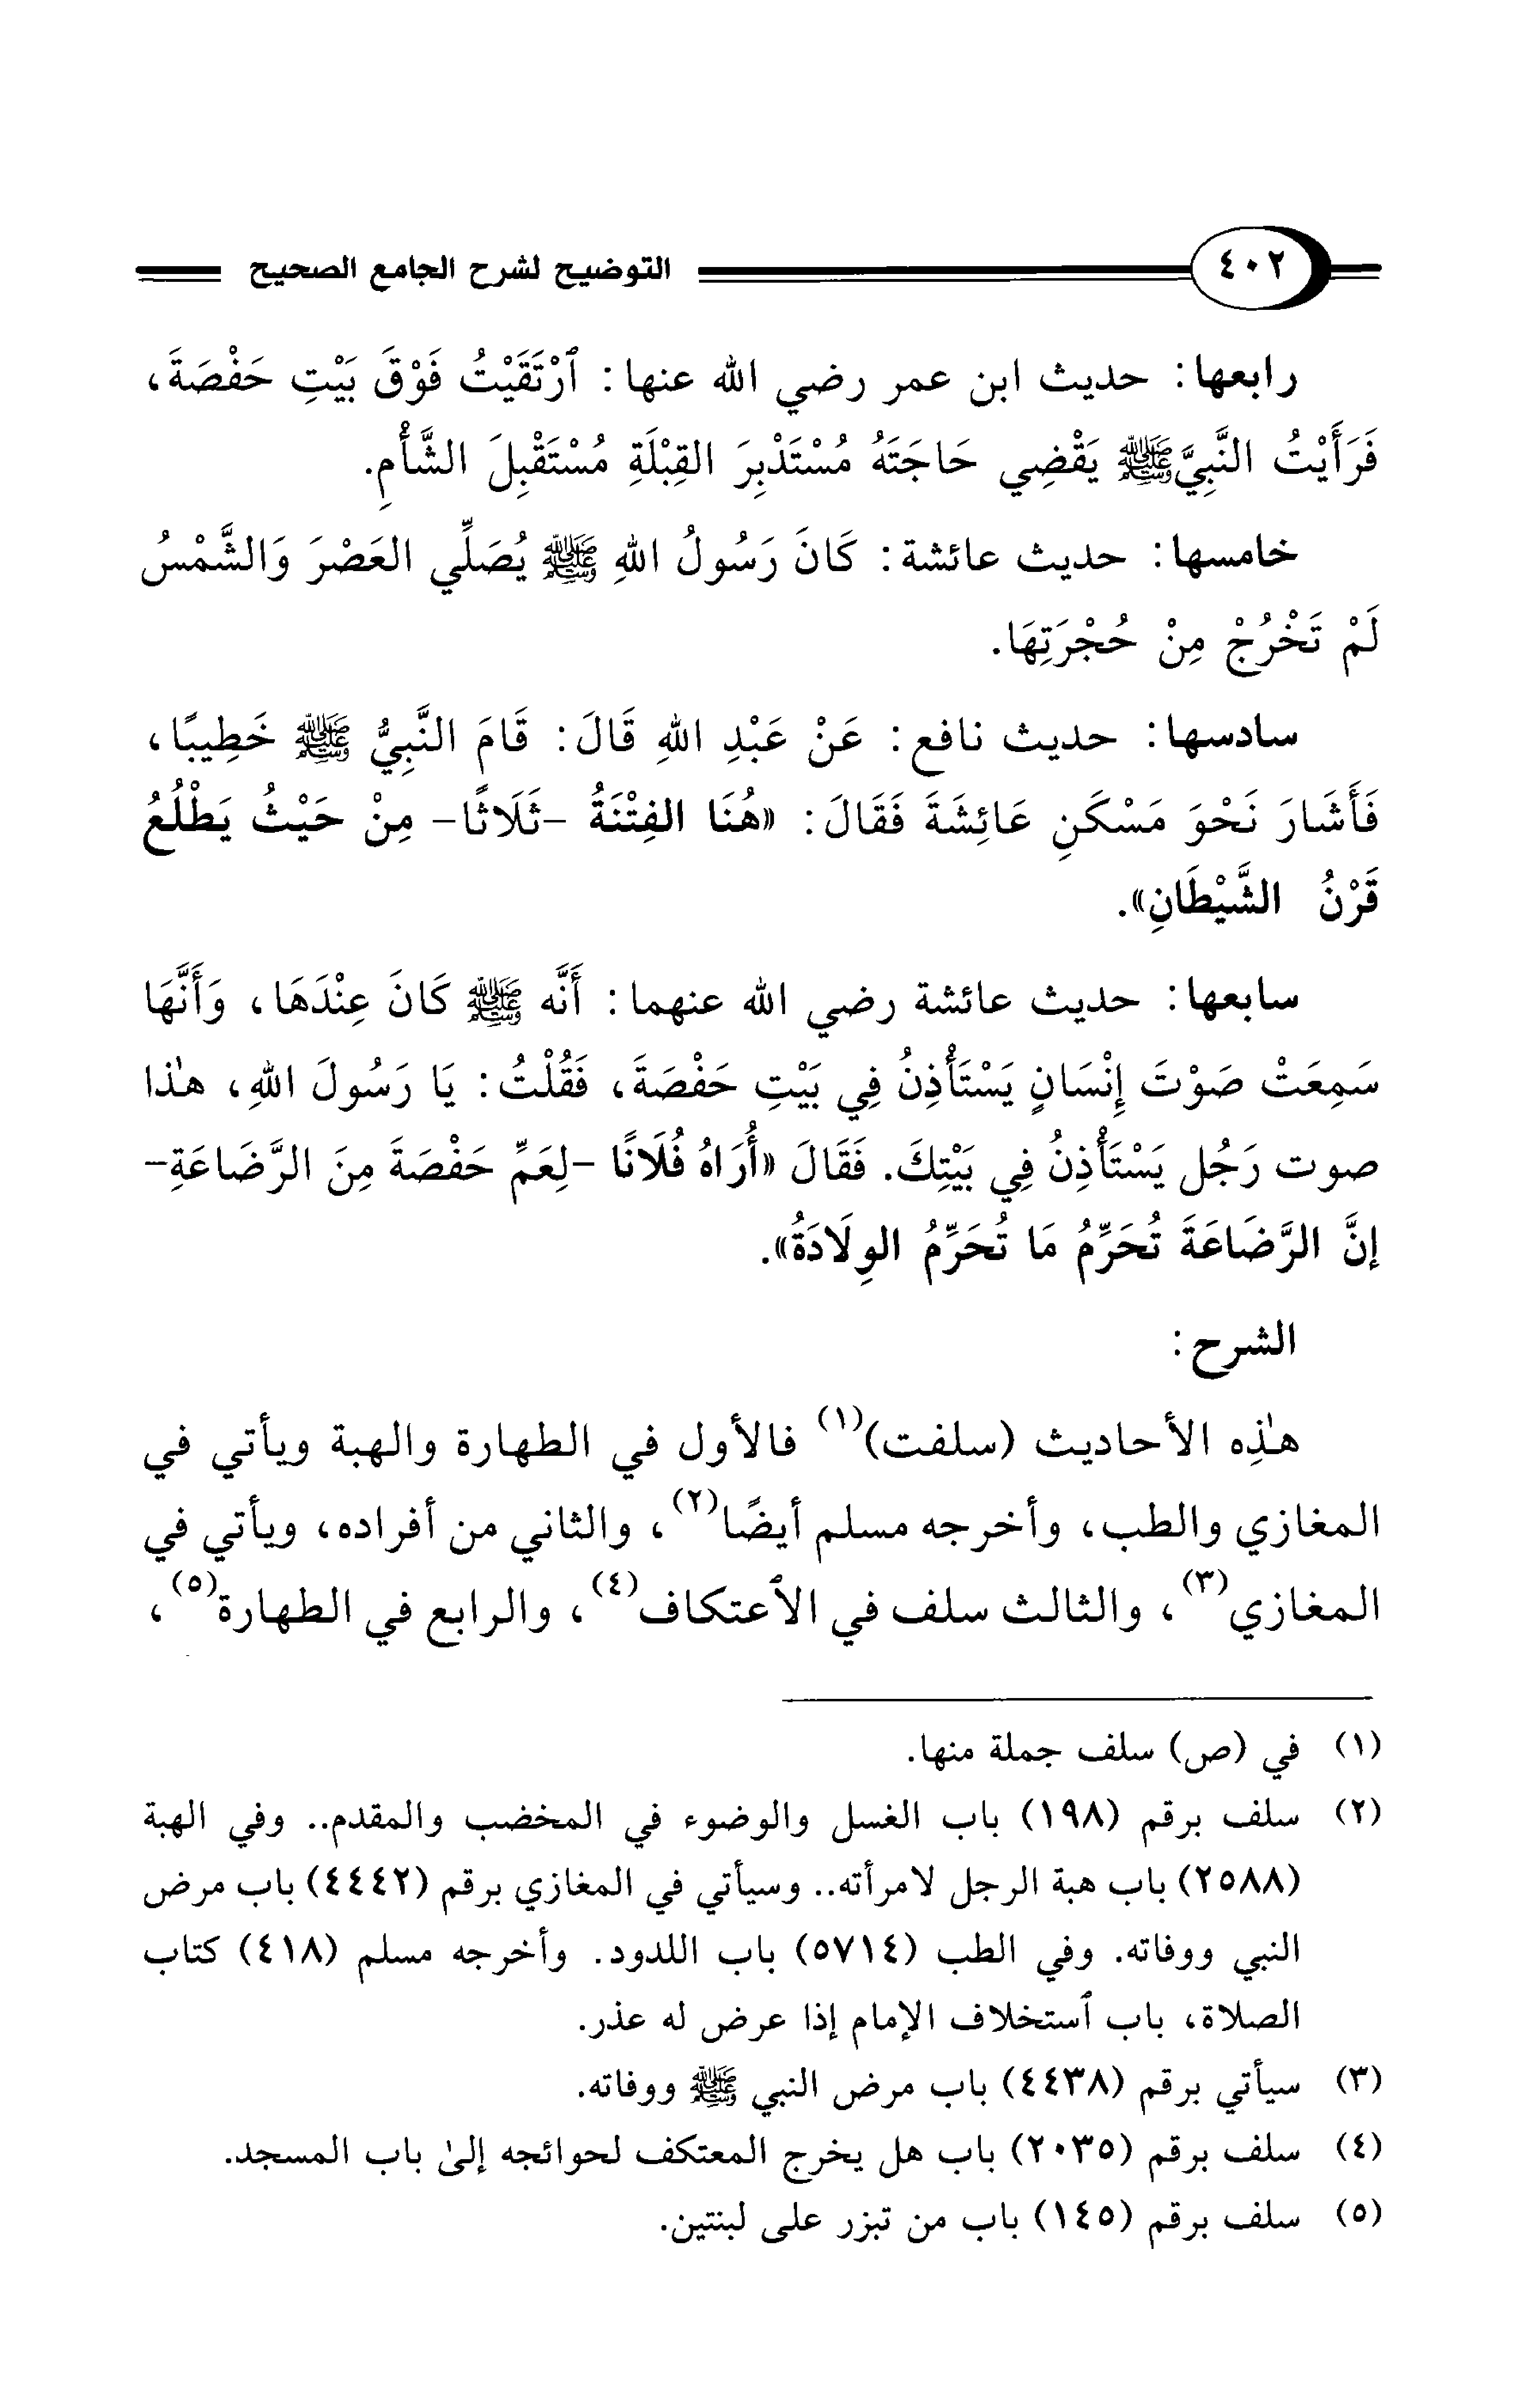 ٤٠٢ التوضيح لشرح الجامع الصحيح
رابعها: حديث ابن عمر رضي الله عنها: ٱرْتَقَيْتُ فَوْقَ بَيْتِ حَفْصَةَ،
فَرَأَيْتُ النَّبِيَّ ﷺ يَقْضِي حَاجَتَهُ مُسْتَدْبِرَ القِبْلَةِ مُسْتَقْبِلَ الشَّأْمِ.
خامسها: حديث عائشة: كَانَ رَسُولُ اللهِ ﷺ يُصَلِّي العَصْرَ وَالشَّمْسُ
لَمْ تَخْرُجْ مِنْ حُجْرَتِهَا.
سادسها: حديث نافع: عَنْ عَبْدِ اللهِ قَالَ: قَامَ النَّبِيُّ ﷺ خَطِيبًا،
فَأَشَارَ نَحْوَ مَسْكَنِ عَائِشَةَ فَقَالَ: «هُنَا الفِتْنَةُ -ثَلَاثًا- مِنْ حَيْثُ يَطْلُعُ
قَرْنُ الشَّيْطَانِ».
سابعها: حديث عائشة رضي الله عنهما: أَنَّه ﷺ كَانَ عِنْدَهَا، وَأَنَّهَا
سَمِعَتْ صَوْتَ إِنْسَانٍ يَسْتَأْذِنُ فِي بَيْتِ حَفْصَةَ، فَقُلْتُ: يَا رَسُولَ اللهِ، هٰذا
صوت رَجُل يَسْتَأْذِنُ فِي بَيْتِكَ. فَقَالَ «أُرَاهُ فُلَانًا -لِعَمِّ حَفْصَةَ مِنَ الرَّضَاعَةِ-
إنَّ الرَّضَاعَةَ تُحَرِّمُ مَا تُحَرِّمُ الوِلَادَةُ».
الشرح:
هٰذِه الأحاديث (سلفت)(١) فالأول في الطهارة والهبة ويأتي في
المغازي والطب، وأخرجه مسلم أيضًا(٢)، والثاني من أفراده، ويأتي في
المغازي(٣)، والثالث سلف في الاعتكاف(٤)، والرابع في الطهارة(٥)،
(١) في (ص) سلف جملة منها.
(٢) سلف برقم (١٩٨) باب الغسل والوضوء في المخضب والمقدم.. وفي الهبة
(٢٥٨٨) باب هبة الرجل لامرأته.. وسيأتي في المغازي برقم (٤٤٤٢) باب مرض
النبي ووفاته. وفي الطب (٥٧١٤) باب اللدود. وأخرجه مسلم (٤١٨) كتاب
الصلاة، باب ٱستخلاف الإمام إذا عرض له عذر.
(٣) سيأتي برقم (٤٤٣٨) باب مرض النبي ﷺ ووفاته.
(٤) سلف برقم (٢٠٣٥) باب هل يخرج المعتكف لحوائجه إلىٰ باب المسجد.
(٥) سلف برقم (١٤٥) باب من تبزر على لبنتين.